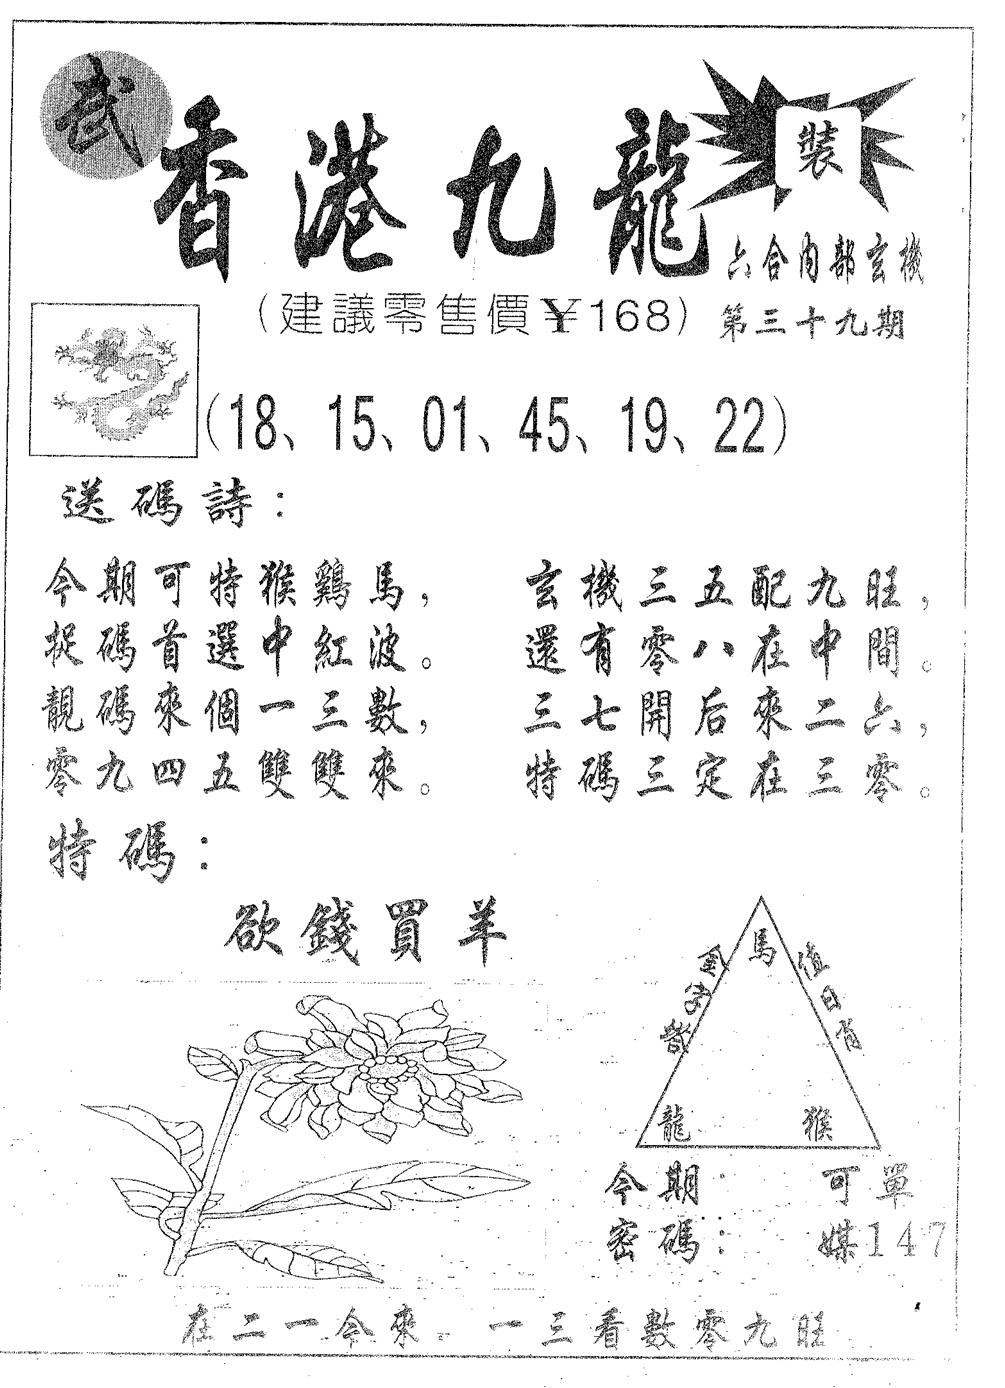 武
香港九龍
裝
六合內部玄機
(建議零售價￥168)
第三十九期
(18、15、01、45、19、22)
送碼詩：
今期可特猴鷄馬，
捉碼首選中紅波。
靚碼來個一三數，
零九四五雙雙來。
玄機三五配九旺，
還有零八在中間。
三七開后來二六，
特碼三定在三零。
特碼：
欲錢買羊
馬
金字
值日肖
龍
猴
今期 可單
密碼： 媒147
在二一今來。一三看數零九旺